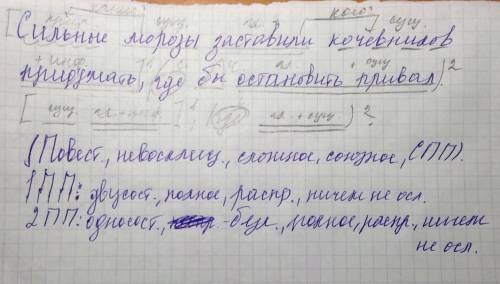 какие? кого?
прил. сущ. гл. сущ.
[Сильные морозы заставили кочевников
+ инф. гл + сущ
придумать, (где бы остановить привал)²
[ сущ. гл. + инф. ], ( где гл. + сущ. ) ?
(Повест., невосклиц., сложное, союзное, СПП).
1ПП: двусост., полное, распр., ничем не осл.
2ПП: односост., - безл., полное, распр., ничем
не осл.